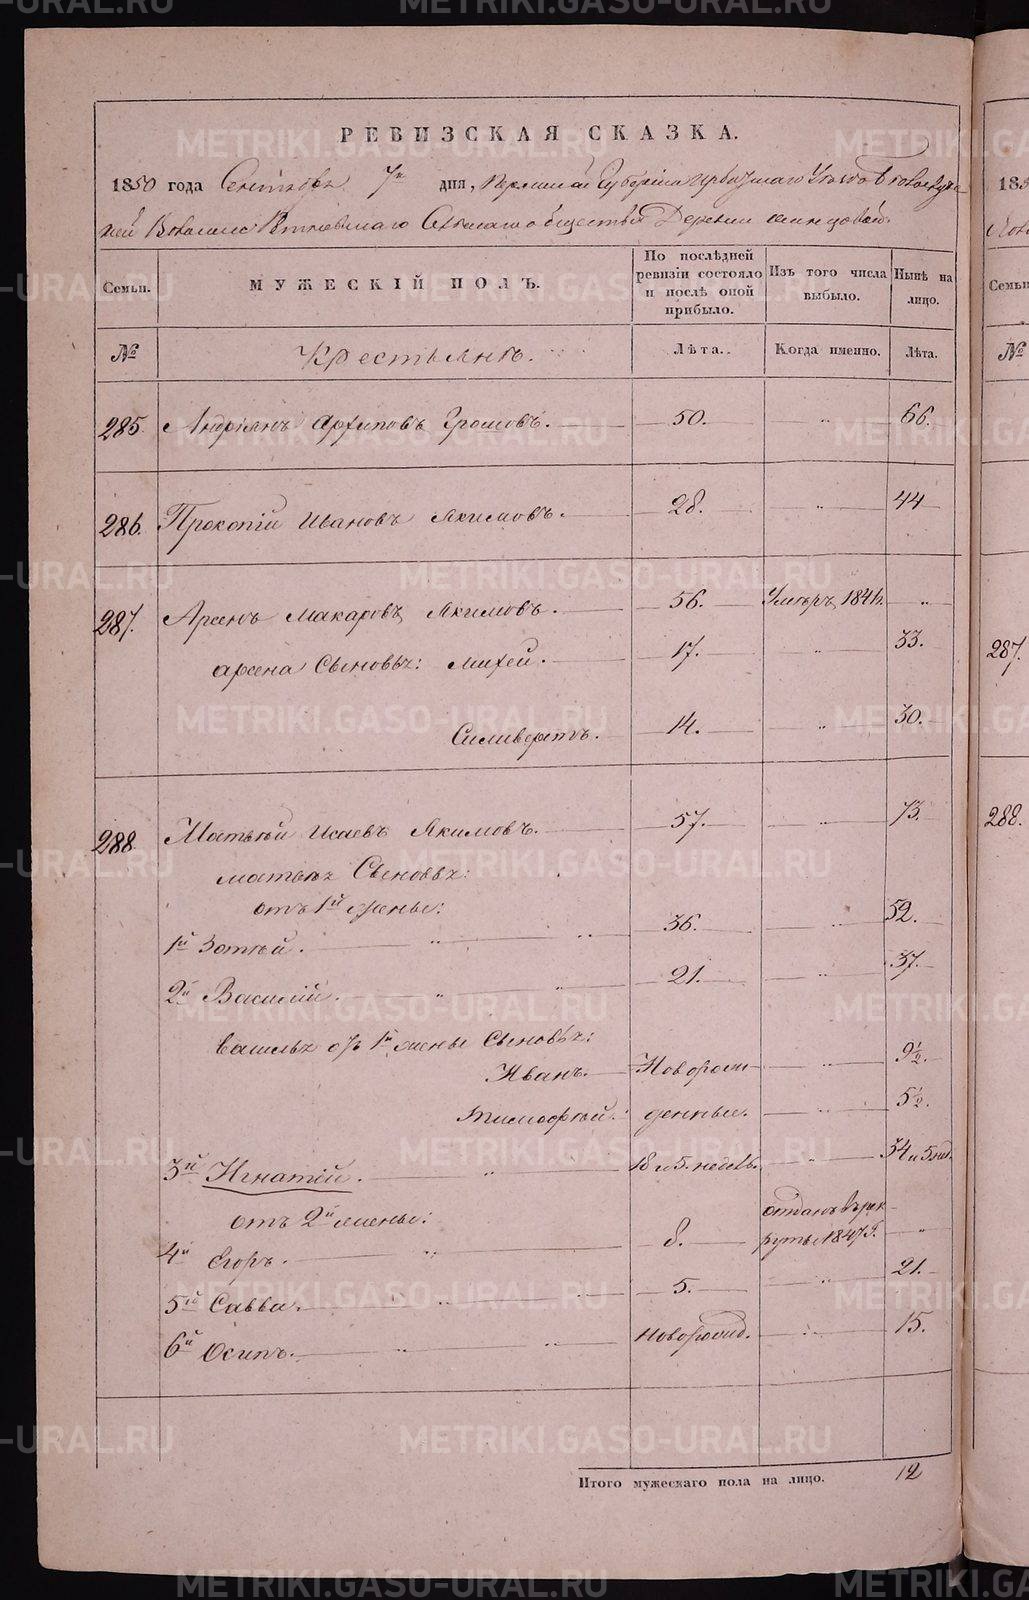 РЕВИЗСКАЯ СКАЗКА.
1850 года Сентября 7го дня, Пермской Губерніи Ирбитскаго Уѣзда
Волости Сельскаго общества Деревни
Семьи.
МУЖЕСКІЙ ПОЛЪ.
По послѣдней ревизіи состояло и послѣ оной прибыло.
Изъ того числа выбыло.
Нынѣ на лицо.
№
Крестьянъ.
Лѣта.
Когда именно.
Лѣта.
285. Андріянъ Архиповъ Громовъ. 50. " 66.
286. Прокопій Ивановъ Якимовъ. 28. " 44
287. Арсенъ Макаровъ Якимовъ. 56. Умеръ 1841г. "
арсена Сыновья: Михей. 17. " 33.
Силиверстъ. 14. " 30.
288. Матвѣй Исаевъ Якимовъ. 57. " 73.
матвѣя Сыновья:
отъ 1й жены:
1й Зотѣй. " " 36. 52.
2й Василій. " " 21. " 37.
василья отъ 1й жены Сыновья:
Иванъ. Новорож " 9½.
Тимофѣй. денные. " 5½.
3й Игнатій. " 18 и 5. недель. " 34 и 5 нед.
отъ 2й жены:
отданъ въ рек
4й Егоръ. " 8. руты 1847г. "
5й Савва. " " 5. " 21.
6й Осипъ. " " новорожд. " 15.
Итого мужескаго пола на лицо. 12
185
Семьи
№
287.
288.
METRIKI.GASO-URAL.RU